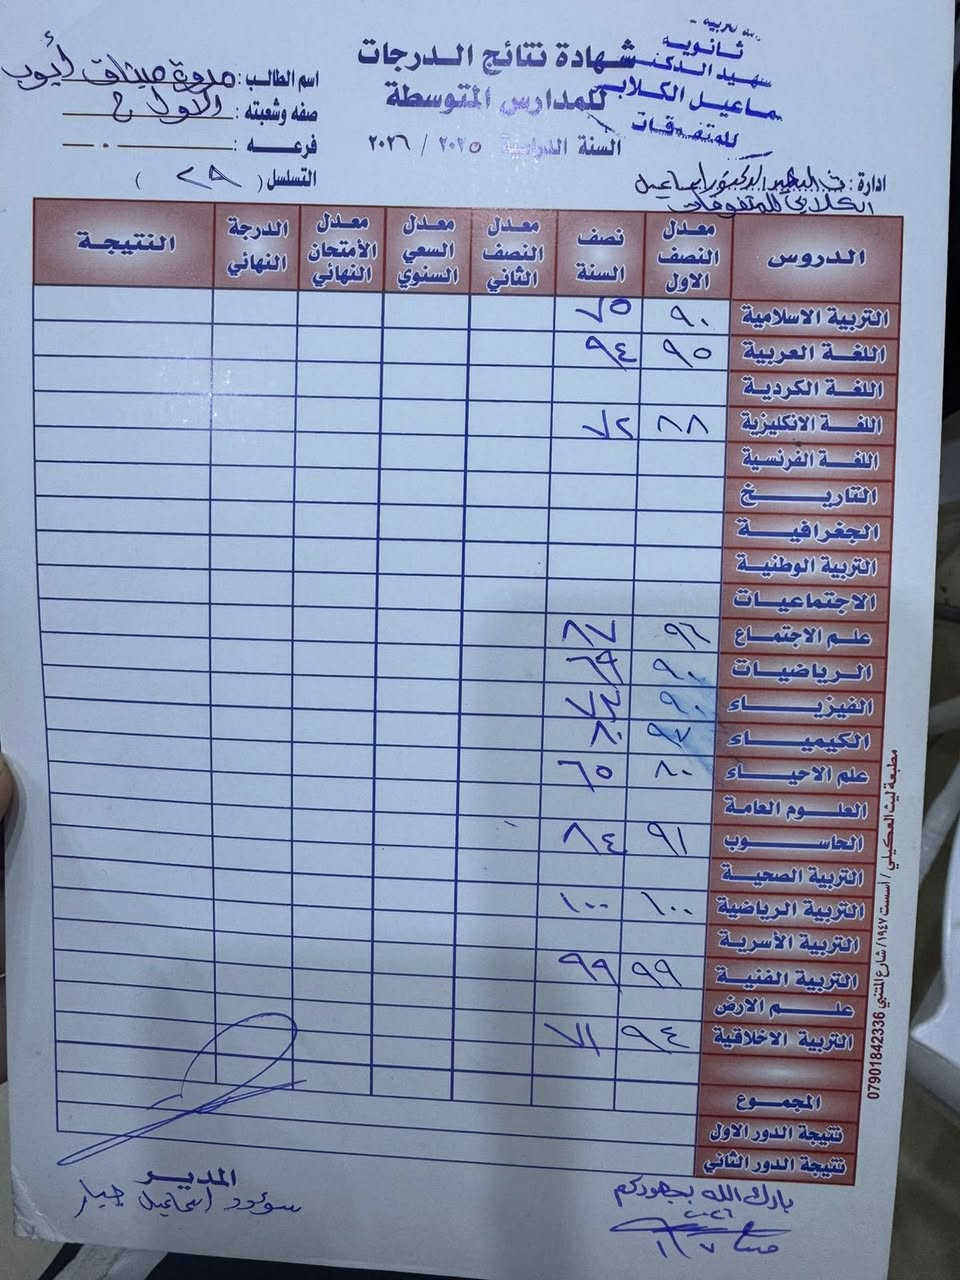 شهادة نتائج الدرجات
للمدارس المتوسطة
السنة الدراسية ٢٠٢٥ / ٢٠٢٦
ثانوية
شهيد الدكتور
اسماعيل الكلابي
للمتفوقات
ادارة : ث الشهيد الدكتور اسماعيل
الكلابي للمتفوقات
اسم الطالب : مروة ميثاق أيوب
صفه وشعبته : الاول ج
فرعه :
التسلسل ( ٢٩ )
الدروس معدل النصف الاول نصف السنة معدل النصف الثاني معدل السعي السنوي معدل الأمتحان النهائي الدرجة النهائي النتيجة
التربية الاسلامية ٩٠ ٧٥
اللغة العربية ٩٥ ٩٤
اللغة الكردية
اللغة الانكليزية ٨٨ ٧٢
اللغة الفرنسية
التاريخ
الجغرافية
التربية الوطنية
الاجتماعيات
علم الاجتماع ٩٦
الرياضيات ٩٠ ٦٩
الفيزياء ٩٠
الكيمياء ٨٠
علم الاحياء ٨٠ ٦٥
العلوم العامة
الحاسوب ٩١ ٨٤
التربية الصحية
التربية الرياضية ١٠٠ ١٠٠
التربية الأسرية
التربية الفنية ٩٩ ٩٩
علم الارض
التربية الاخلاقية ٩٤ ٧١
المجموع
نتيجة الدور الاول
نتيجة الدور الثاني
بارك الله بجهودكم
٢٠٢٦
المدير
سؤدد اسماعيل جبار
مطبعة ليث العكيلي / أسست ١٩٤٧ / شارع المتنبي 07901842336